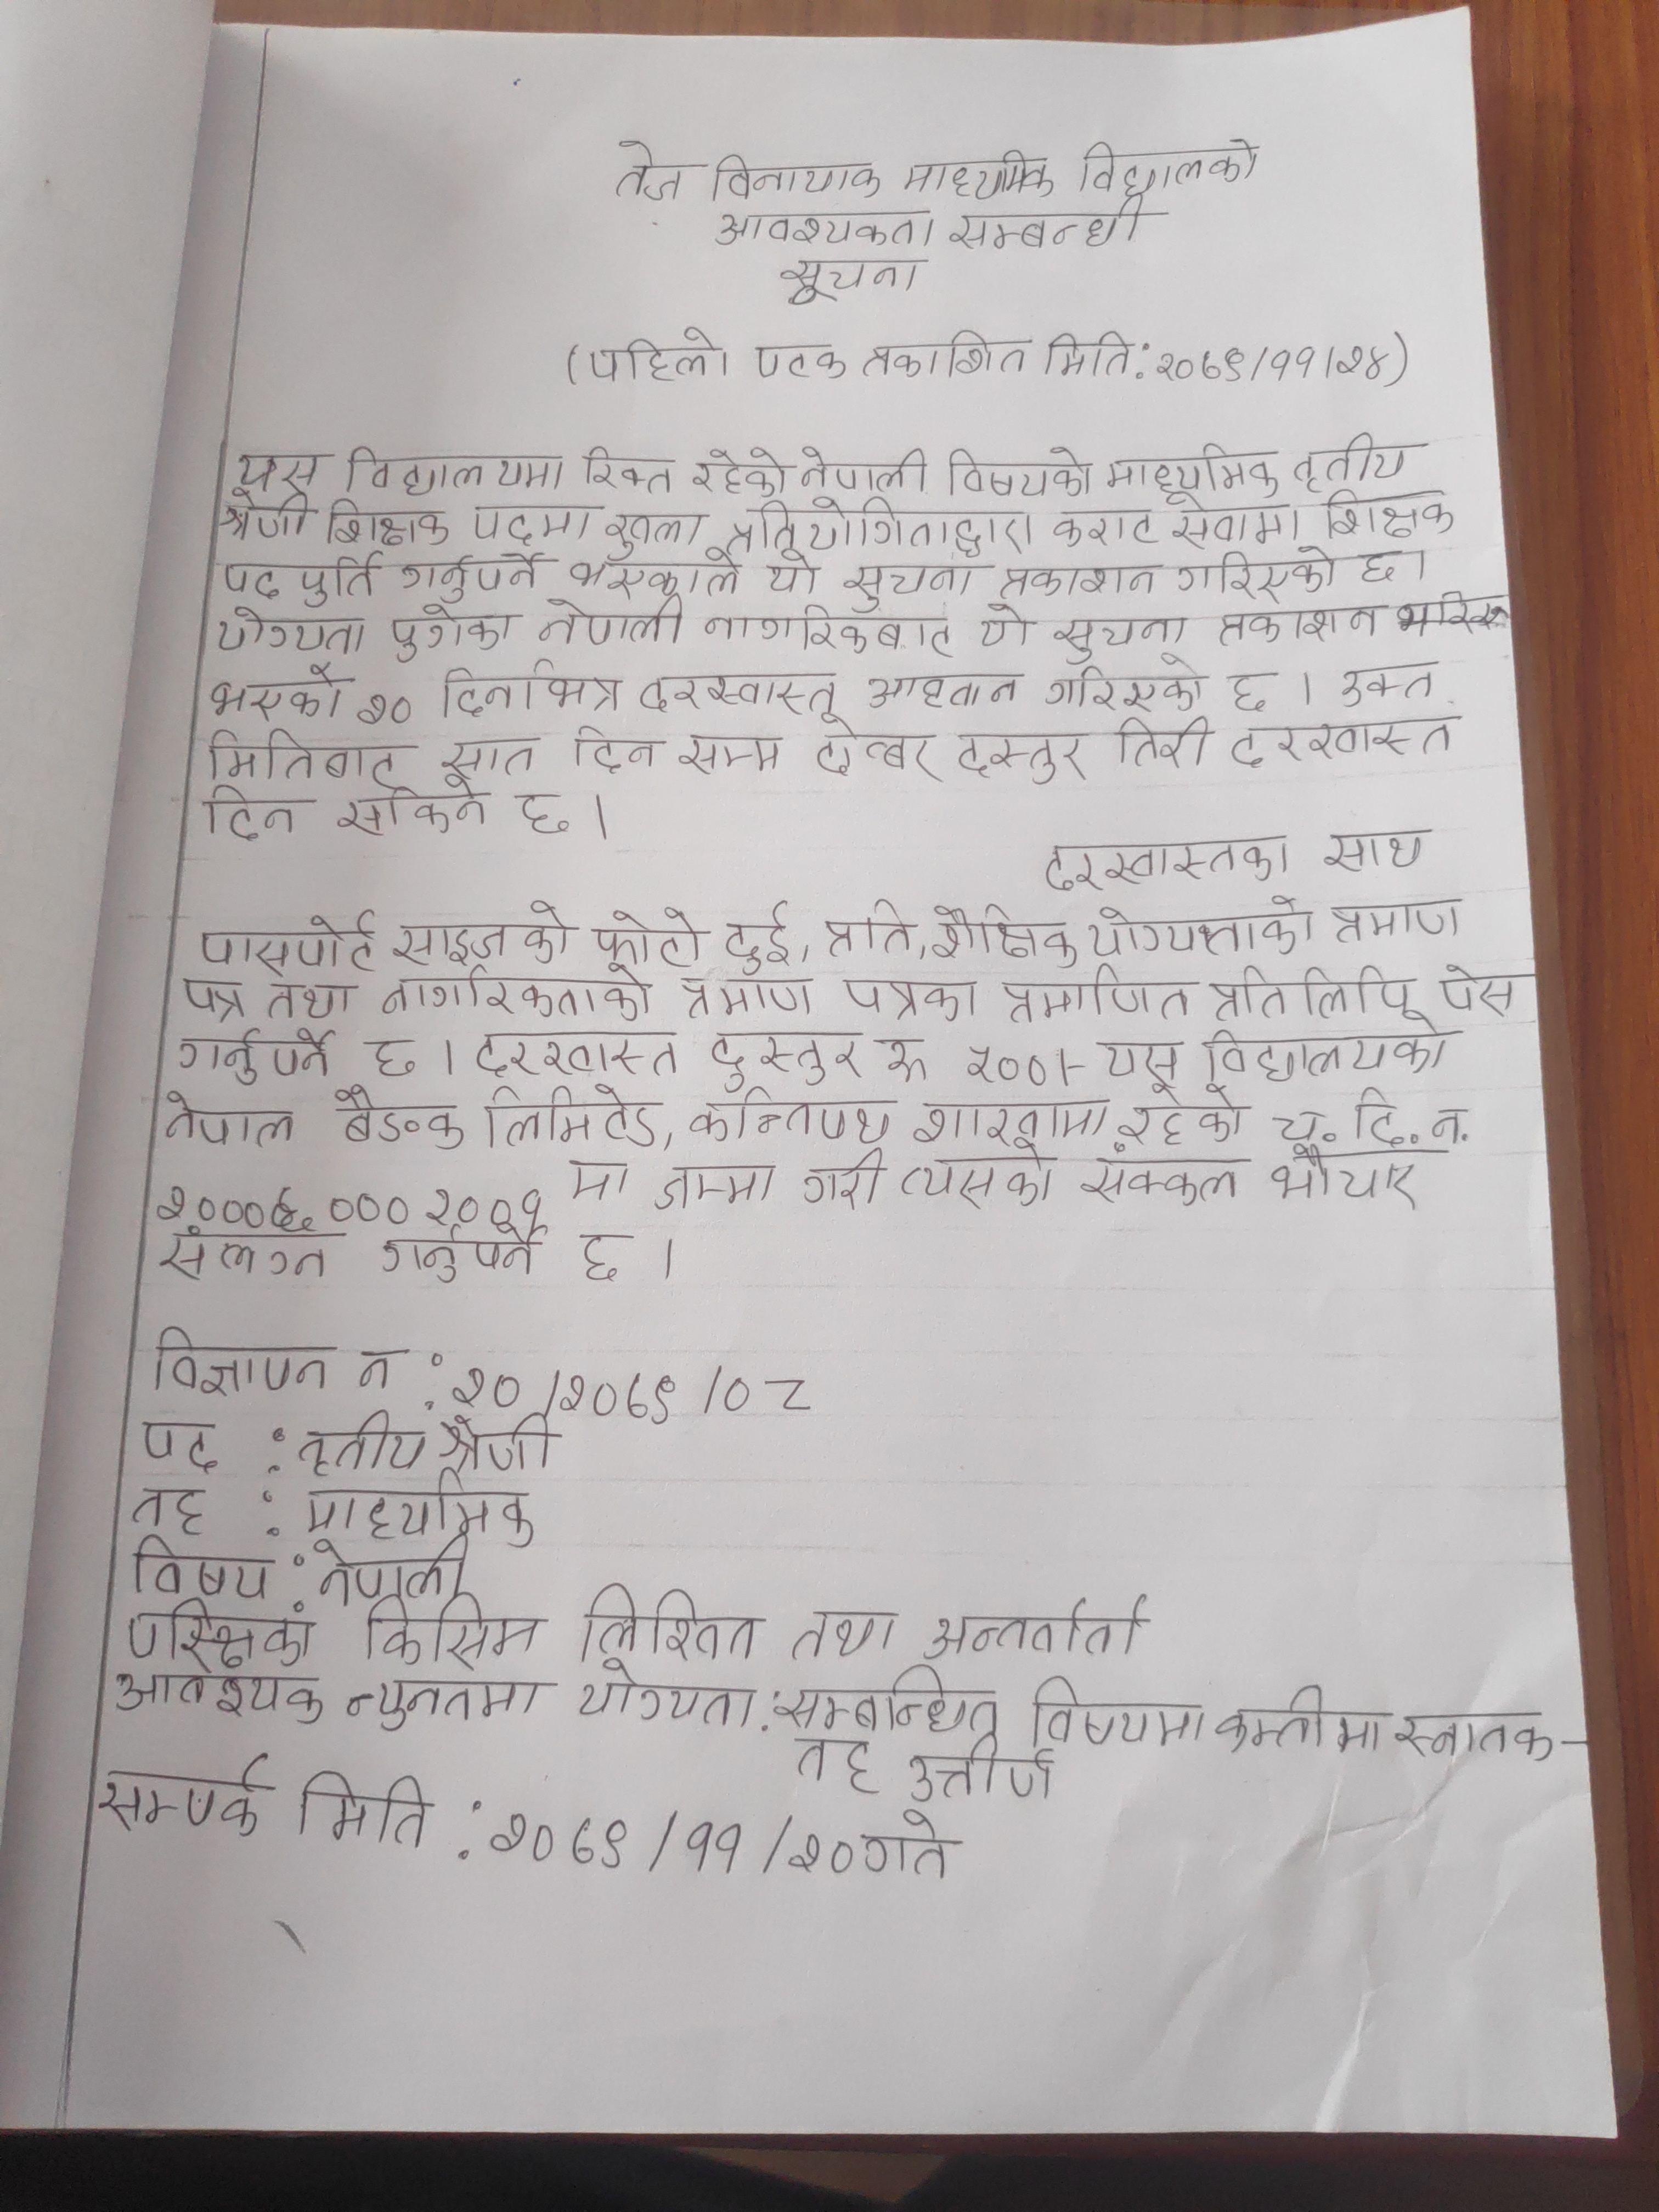 तेज विनायाक माध्यमिक विद्यालको
आवश्यकता सम्बन्धी
सूचना
(पहिलो पटक प्रकाशित मिति: २०६९/११/२४)
यस विद्यालयमा रिक्त रहेको नेपाली विषयको माध्यमिक तृतीय
श्रेणी शिक्षक पदमा खुला प्रतियोगिताद्वारा करार सेवामा शिक्षक
पद पुर्ति गर्नुपर्ने भएकाले यो सुचना प्रकाशन गरिएको छ।
योग्यता पुगेका नेपाली नागरिकबाट यो सुचना प्रकाशन
भएको २० दिनभित्र दरखास्त आहवान गरिएको छ । उक्त
मितिबाट सात दिन सम्म दोब्बर दस्तुर तिरी दरखास्त
दिन सकिने छ ।
दरखास्तका साथ
पासपोर्ट साइजको फोटो दुई, प्रति, शैक्षिक योग्यताको प्रमाण
पत्र तथा नागरिकताको प्रमाण पत्रका प्रमाणित प्रतिलिपि पेस
गर्नुपर्ने छ । दरखास्त दुस्तुर रु ५००।- यस विद्यालयको
नेपाल बैङक लिमिटेड, कन्तिपथ शाखामा रहेको च. दि. न.
मा जम्मा गरी त्यसको संक्कल भौचार
संलग्न गर्नुपर्ने छ ।
विज्ञापन न : २०/२०६९/०८
पद : तृतीय श्रेणी
तह : माध्यमिक
विषय : नेपाली
किसिम लिखित तथा अन्तर्वार्ता
आवश्यक न्युनतमा योग्यता : सम्बन्धित विषयमा कम्तीमा स्नातक-
तह उत्तीर्ण
सम्पर्क मिति : २०६९/११/२०गते